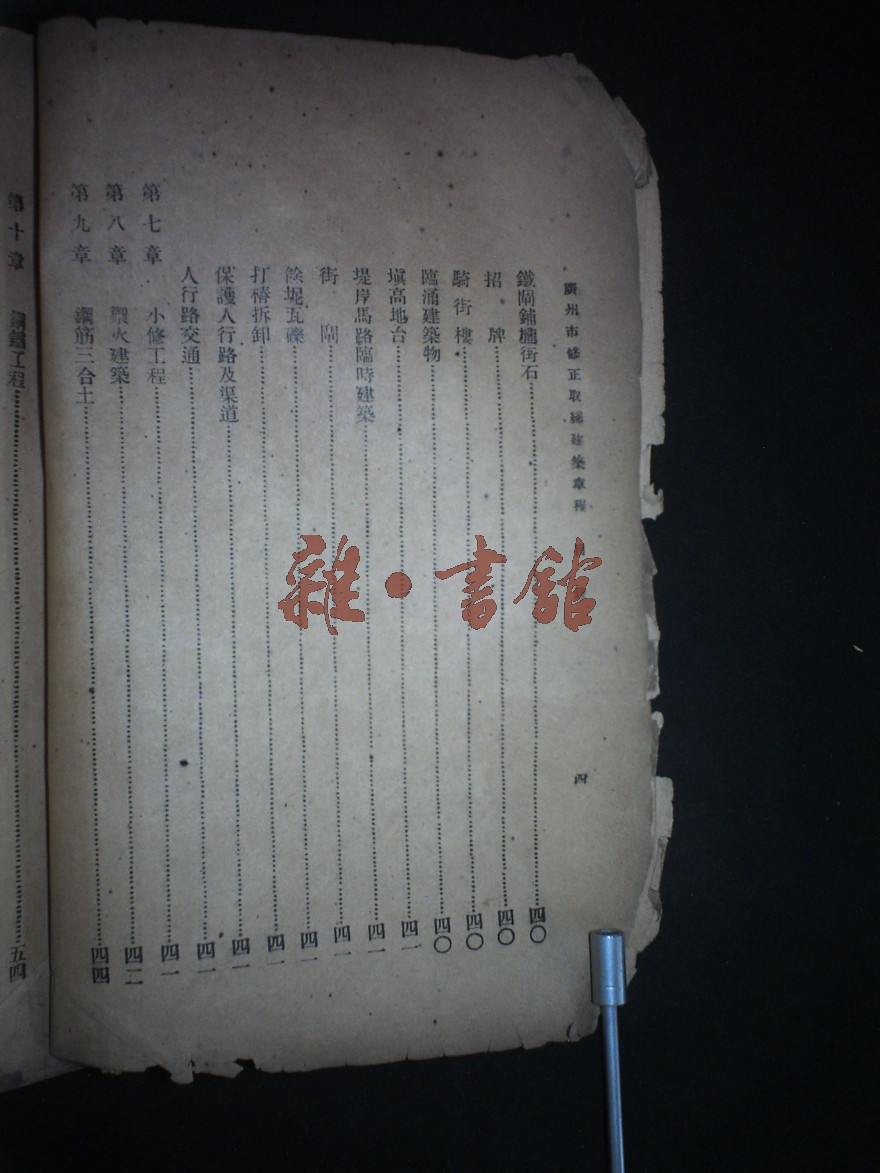 廣州市修正取締建築章程 四
鐵閘鋪墟街石…………四〇
招牌…………四〇
騎街樓…………四〇
臨涌建築物…………四〇
塡高地台…………四一
堤岸馬路臨時建築…………四一
街閘…………四一
餘坭瓦礫…………四一
打樁拆卸…………四一
保護人行路及渠道…………四一
人行路交通…………四一
第七章 小修工程…………四一
第八章 禦火建築…………四二
第九章 鋼筋三合土…………四四
第十章 鋼鐵工程…………五四
雜·書館